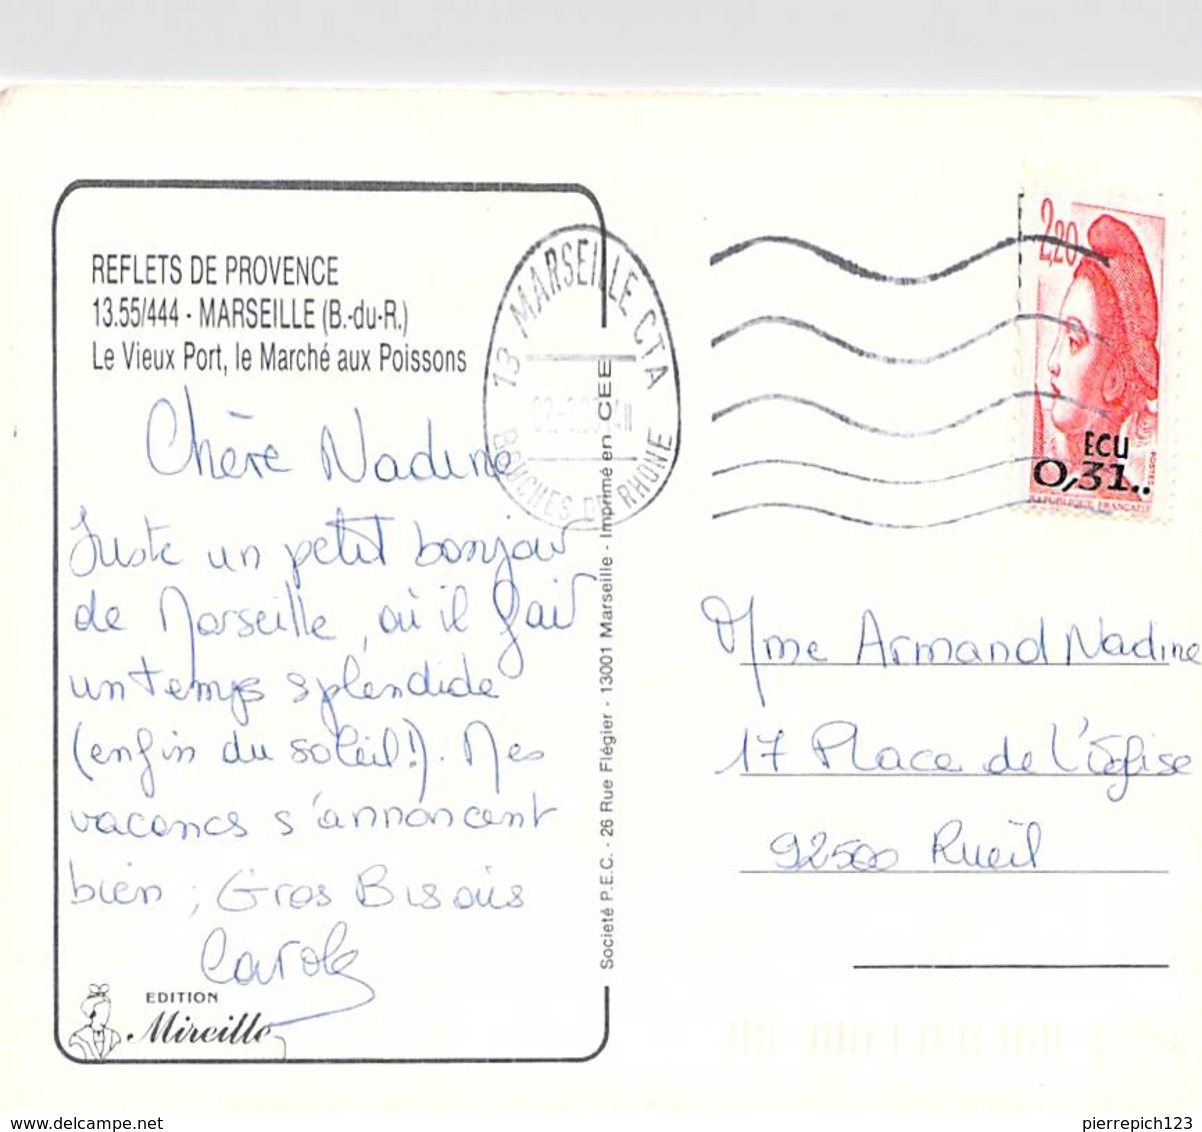 REFLETS DE PROVENCE
13.55/444 - MARSEILLE (B.-du-R.)
Le Vieux Port, le Marché aux Poissons
Chère Nadine
Juste un petit bonjour
de Marseille, où il fait
un temps splendide
(enfin du soleil!). Mes
vacances s'annoncent
bien ; Gros Bisous
Carole
EDITION
Mireille
Societé P.E.C. - 26 Rue Flégier - 13001 Marseille - Imprimé en CEE
13 MARSEILLE CTA
BOUCHES DU RHONE
2,20
ECU
0,31..
POSTES
REPUBLIQUE FRANCAISE
Mme Armand Nadine
17 Place de L'Eglise
92500 Rueil
www.delcampe.net
pierrepich123